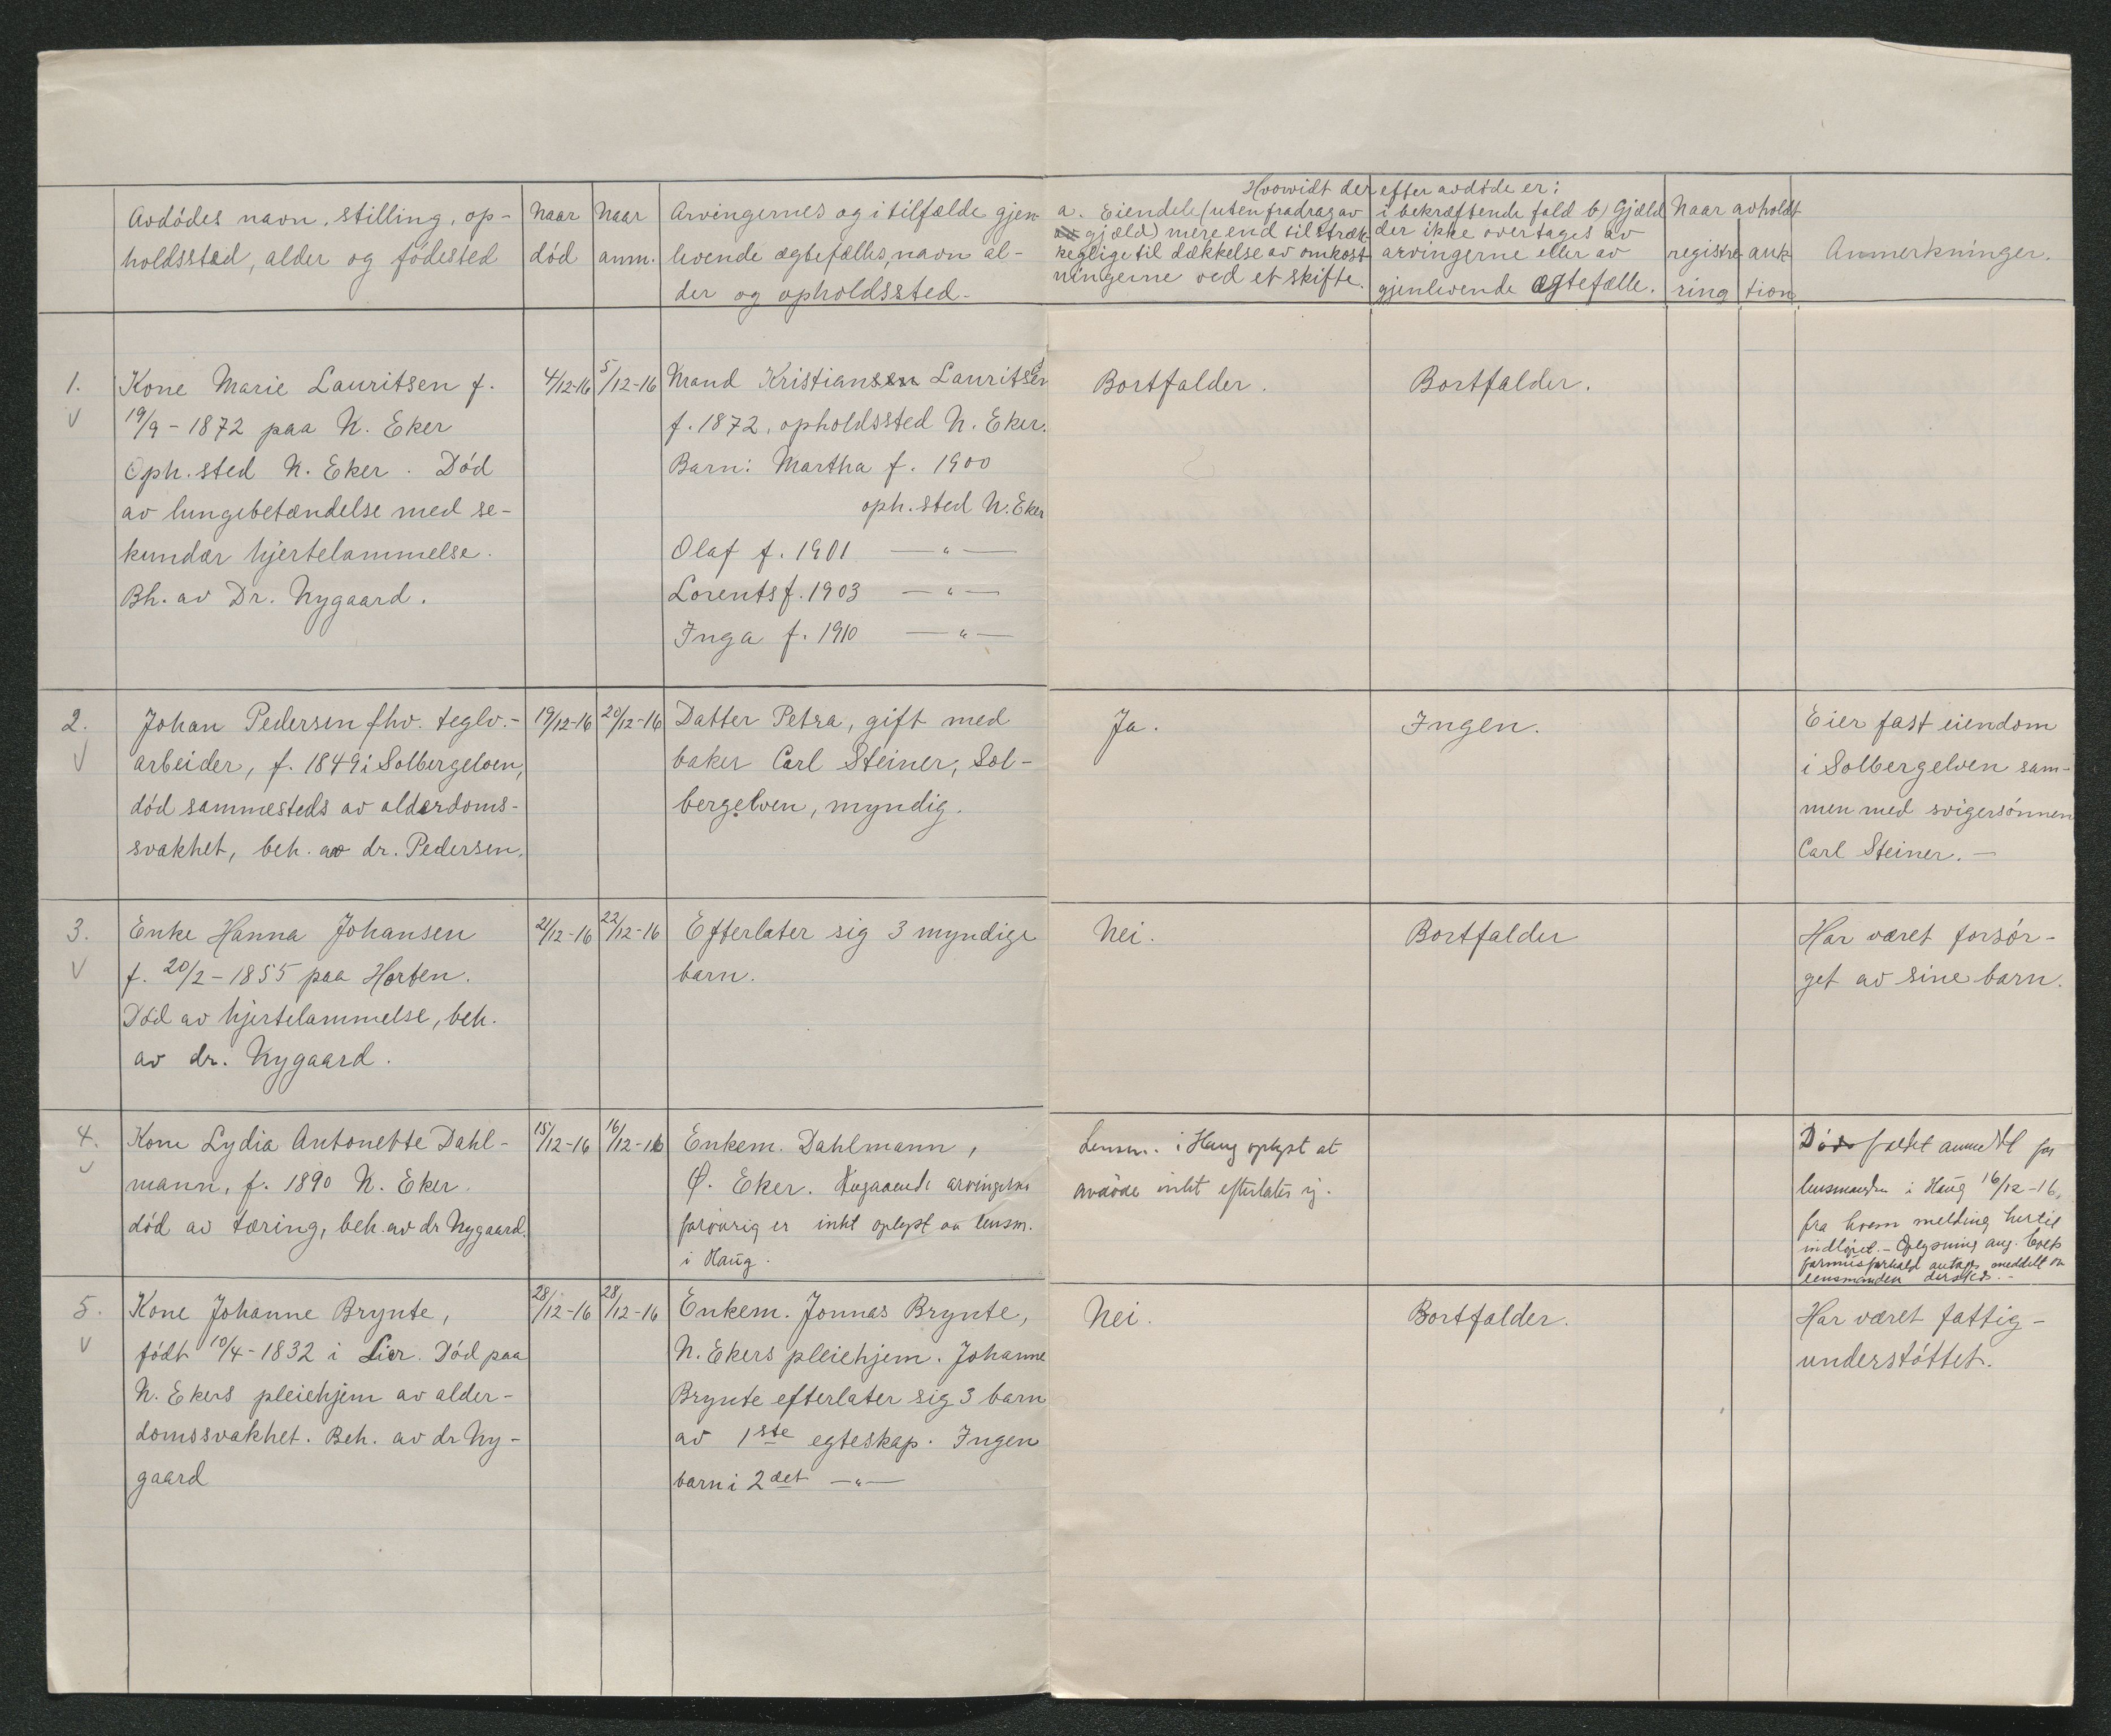 Hvorvidt der efter avdöde er:
Avdödes navn, stilling, op-
holdssted, alder og födested
Naar
död
Naar
anm.
Arvingernes og i tilfælde gjen-
levende ægtefælles, navn al-
der og opholdssted-
a. Eiendele (uten fradrag av
gjæld) mere end tilstræk-
keglige til dækkelse av omkost
ningerne ved et skifte.
i bekræftende fald b) Gjæld
der ikke overtages av
arvingerne eller av
gjenlevende ægtefælle.
Naar avholdt
registre-
ring
auk
tion
Anmerkninger.
1.
Kone Marie Lauritsen f.
19/9-1872 paa N. Eker
Oph.sted N. Eker. Död
av lungebetændelse med se-
kundær hjertelammelse.
Bh. av Dr. Nygaard.
4/12-16
5/12-16
Mand Kristiansen Lauritsen
f. 1872, opholdssted N. Eker.
Barn: Martha f. 1900
oph.sted N. Eker
Olaf f. 1901 —"—
Lorents f. 1903 —"—
Inga f. 1910 —"—
Bortfalder.
Bortfalder.
2.
Johan Pedersen fhv. teglv.-
arbeider, f. 1849 i Solbergelven,
död sammesteds av alderdoms-
svakhet, beh. av dr. Pedersen.
19/12-16
20/12-16
Datter Petra, gift med
baker Carl Steiner, Sol-
bergelven, myndig.
Ja.
Ingen.
Eier fast eiendom
i Solbergelven sam-
men med svigersönnen
Carl Steiner.-
3.
Enke Hanna Johansen
f. 20/2-1855 paa Horten.
Död av hjertelammelse, beh.
av dr. Nygaard.
21/12-16
22/12-16
Efterlater sig 3 myndige
barn.
Nei.
Bortfalder
Har været forsör-
get av sine barn.
4.
Kone Lydia Antonette Dahl-
mann, f. 1890 N. Eker.
död av tæring, beh. av dr Nygaard.
15/12-16
16/12-16
Enkem. Dahlmann,
Ö. Eker. Angaaende arvingerne
forövrig er intet oplyst av lensm.
i Haug.
Lensm. i Haug oplyst at
avdöde intet efterlater sig.
Dödsfaldet anmeldt for
lensmanden i Haug 16/12-16,
fra hvem melding hertil
indlöpet.- Oplysning ang.
formuesforhold antages meddelt av
lensmanden dersteds.-
5.
Kone Johanne Brynte,
födt 10/4-1832 i Lier. Död paa
N. Ekers pleiehjem av alder-
domssvakhet. Beh. av dr Ny-
gaard
28/12-16
28/12-16
Enkem. Jonnas Brynte,
N. Ekers pleiehjem. Johanne
Brynte efterlater sig 3 barn
av 1ste egteskap. Ingen
barn i 2det —"—
Nei.
Bortfalder.
Har været fattig-
understöttet.